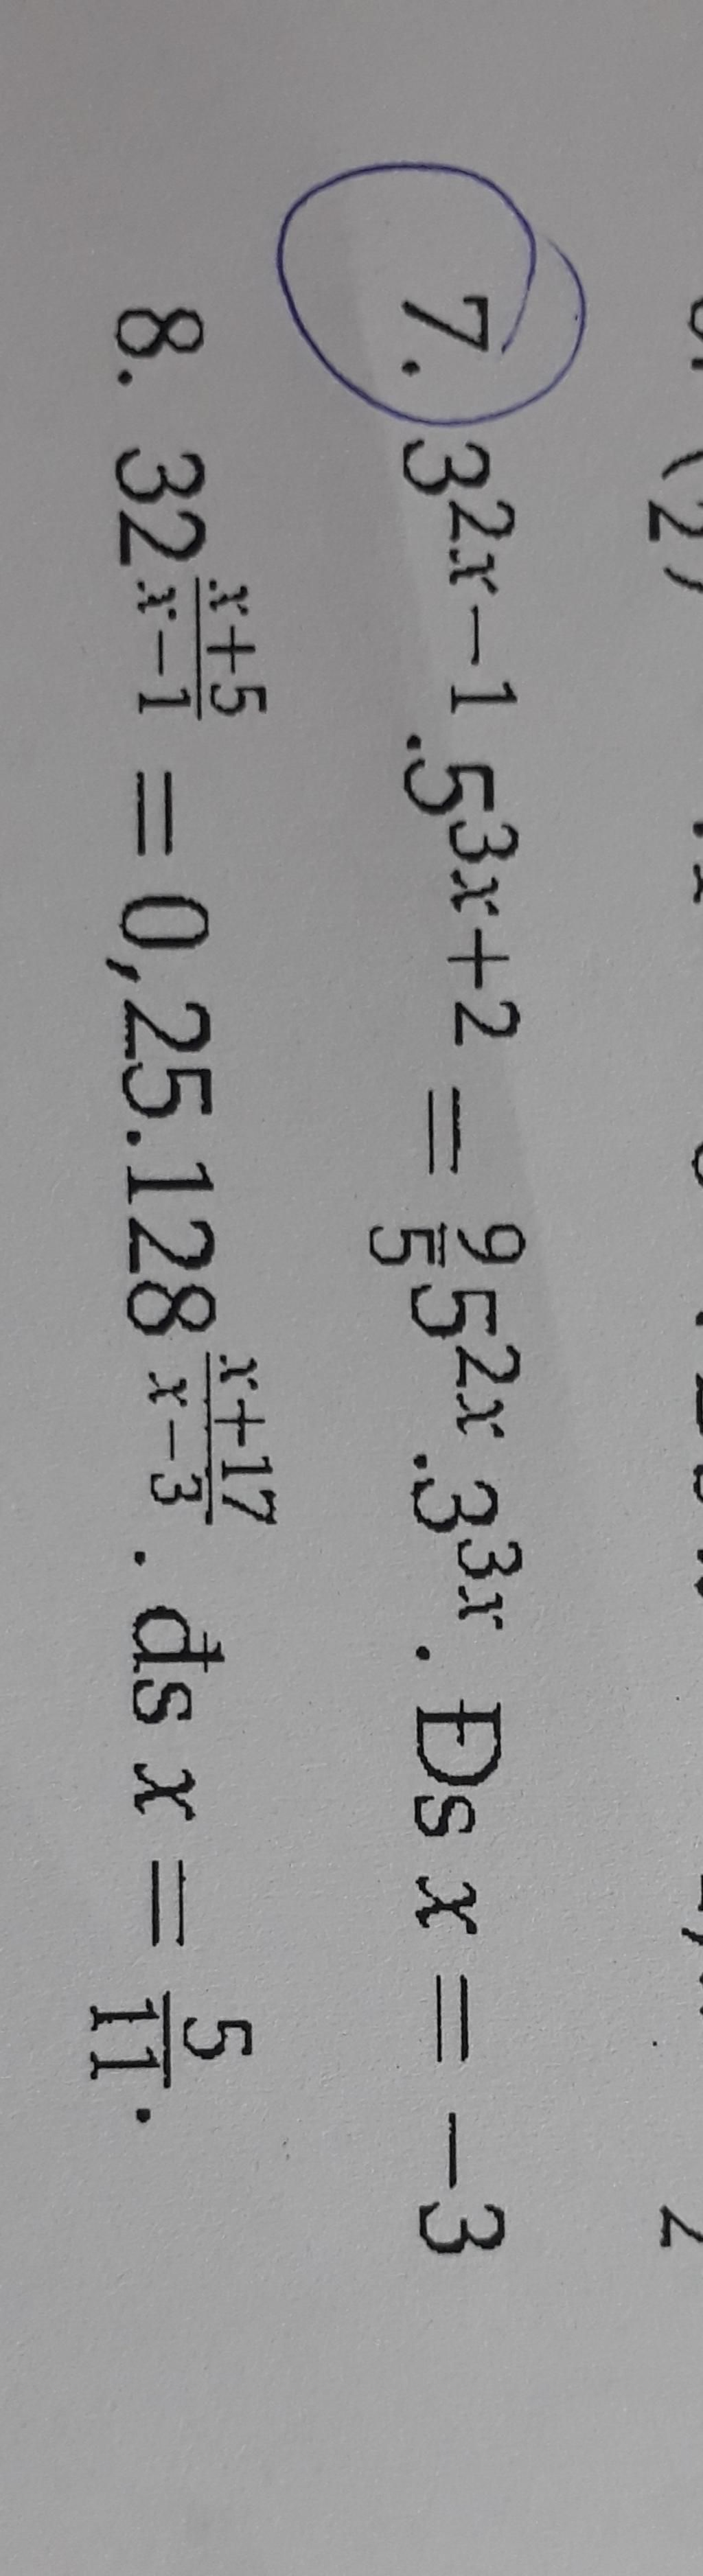 7. 3^{2x-1}.5^{3x+2} = \frac{9}{5}5^{2x}.3^{3x}. Đs x = -3
8. 32^{\frac{x+5}{x-1}} = 0,25.128^{\frac{x+17}{x-3}}. đs x = \frac{5}{11}.